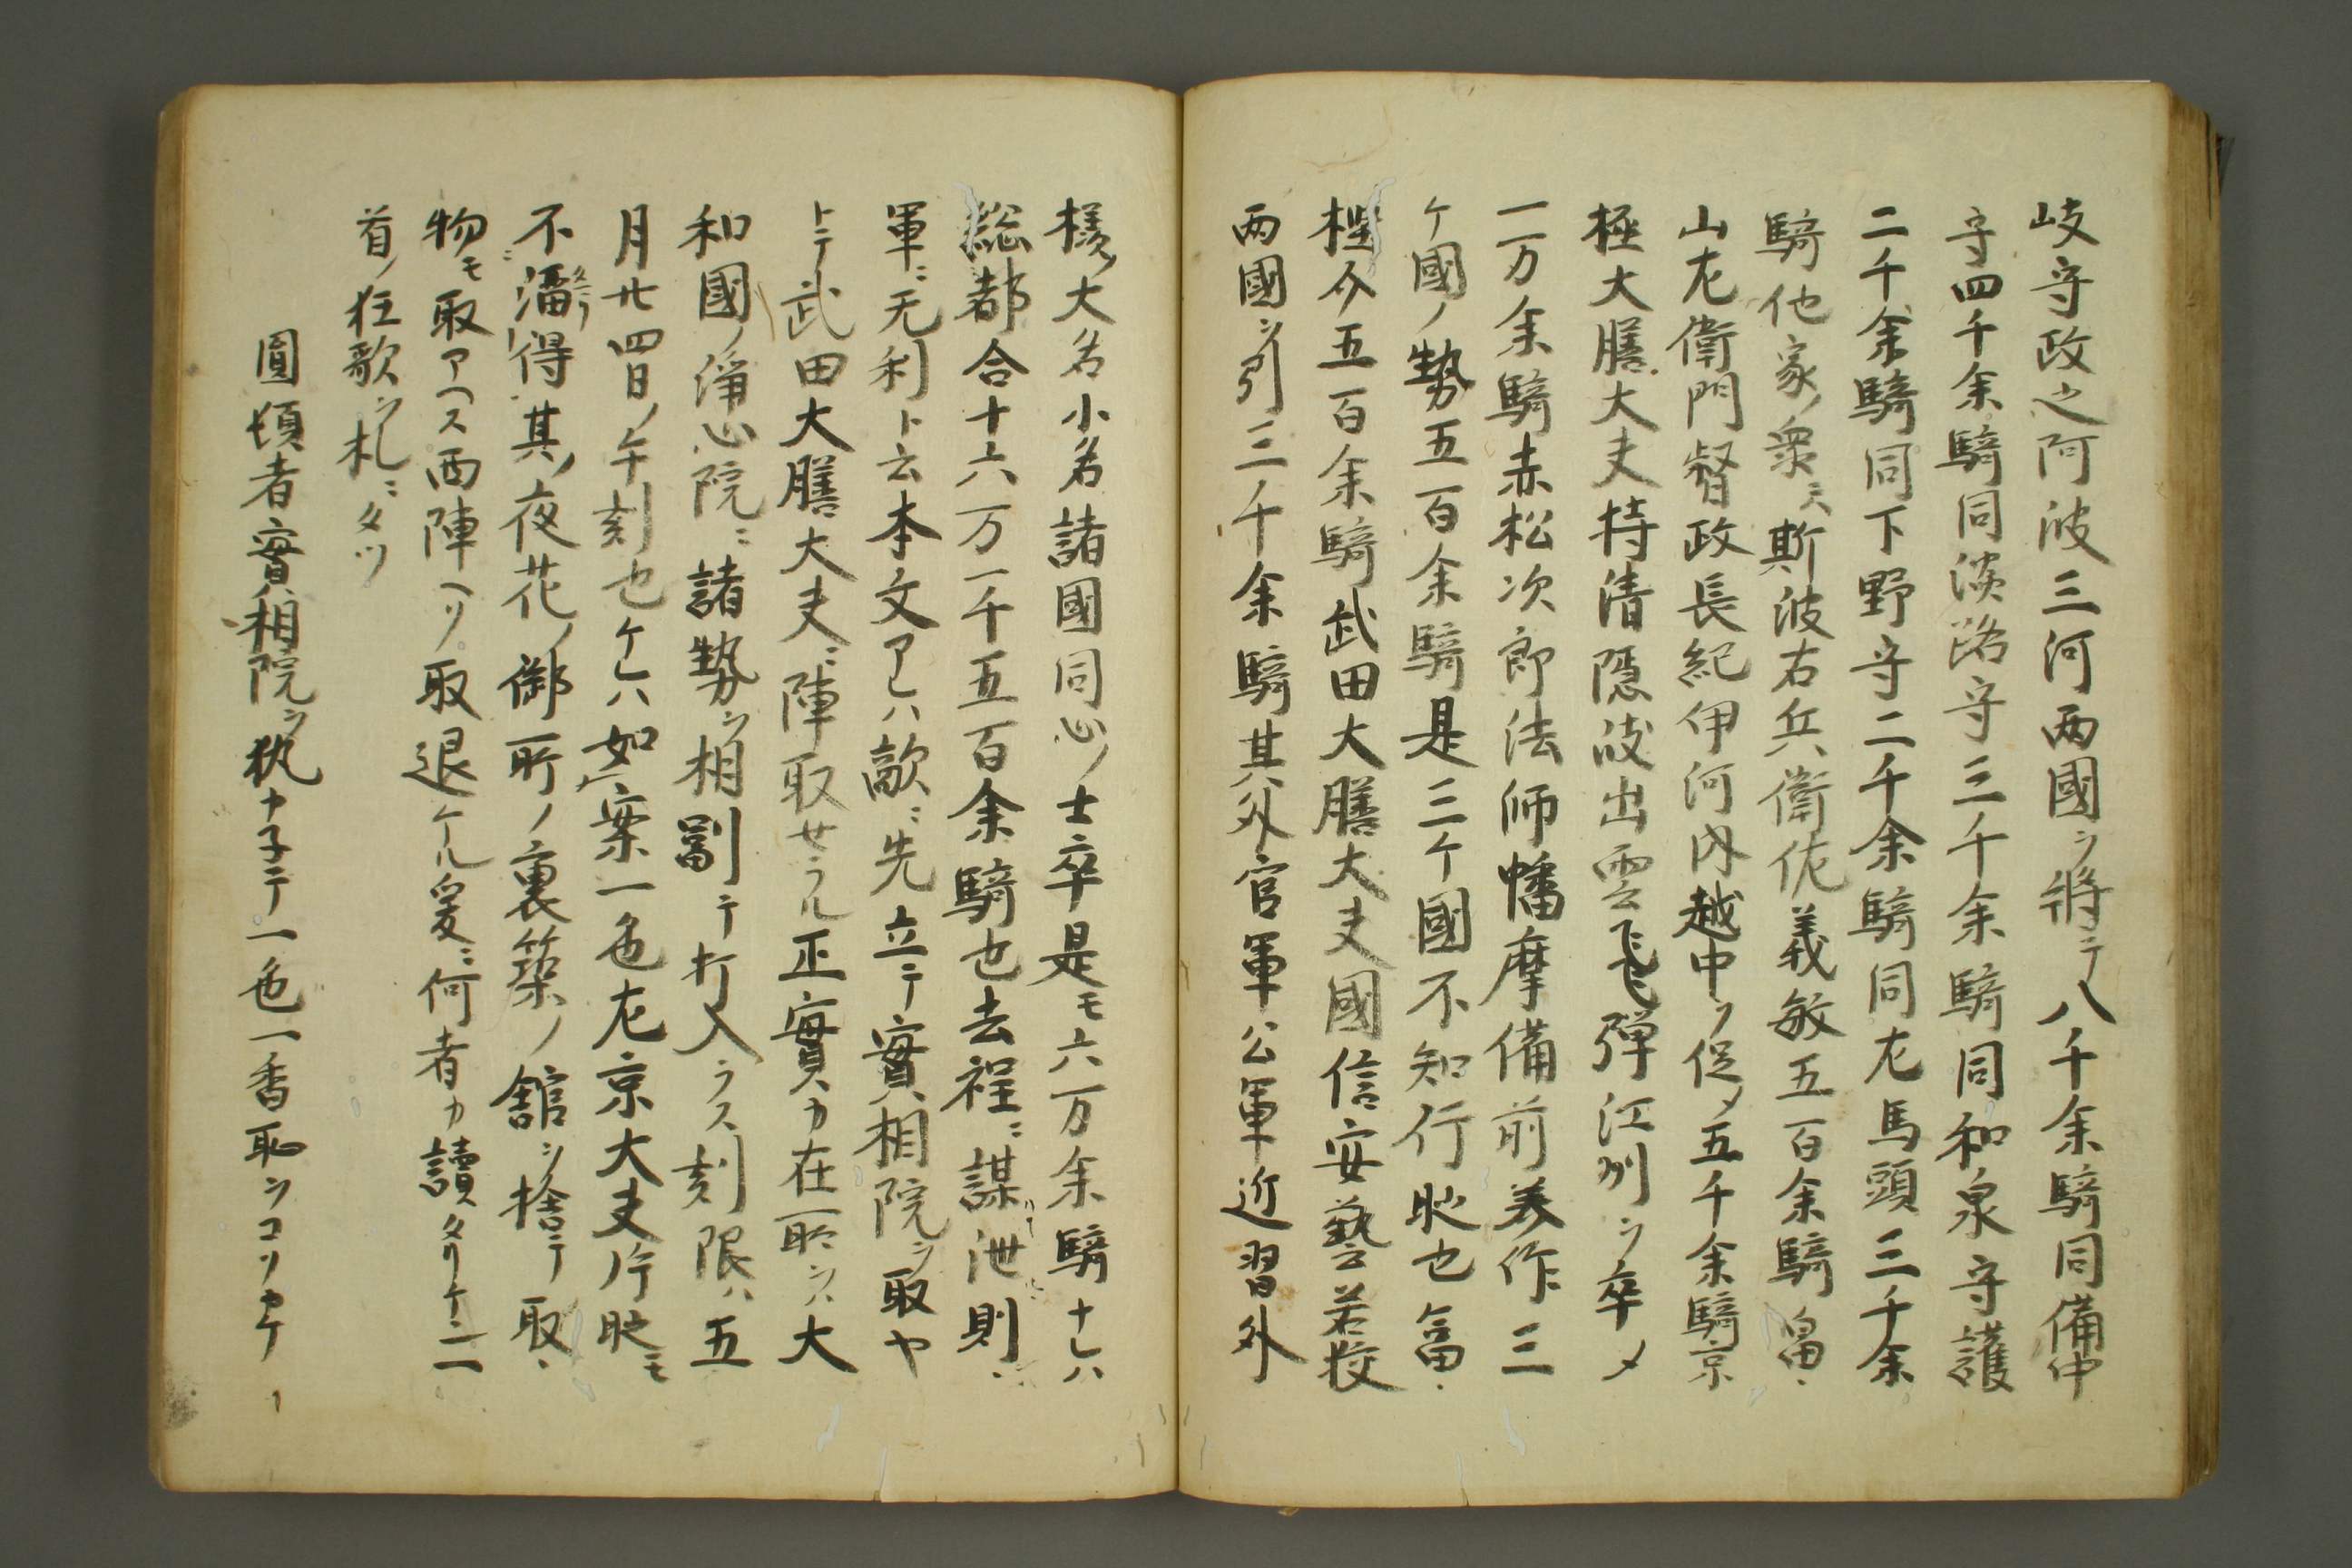 岐守政之阿波三河両國ヲ將テ八千余騎同備中
守四千余騎同淡路守三千余騎同和泉守護
二千余騎同下野守二千余騎同左馬頭三千余
騎他家ノ衆ニハ斯波右兵衛佐義敏五百余騎畠
山左衛門督政長紀伊河内越中ヲ促〆五千余騎京
極大膳大夫持清隠岐出雲飛彈江州ヲ卒〆
一万余騎赤松次郎法師幡摩備前美作三
ケ國ノ勢五百余騎是三ケ國不知行故也冨
樫介五百余騎武田大膳大夫國信安藝若狡
両國ヲ引三千余騎其外官軍公軍近習外
様大名小名諸國同心ノ士卒是モ六万余騎ナレハ
総都合十六万一千五百余騎也去程ニ謀泄則
軍ニ无利ト云本文アレハ敵ニ先立テ實相院ヲ取ヤ
トテ武田大膳大夫ニ陣取セラル正實カ在所ヲハ大
和國ノ浄心院ニ諸勢ヲ相副テ打入ラス刻限ハ五
月廿四日ノ午刻也ケレハ如案一色左京大夫片時モ
不溜得其ノ夜花ノ御所ノ裏築ノ舘ヲ捨テ取
物モ取アヘス西陣ヘソ取退ケル爰ニ何者カ讀タリケン一
首ノ狂歌ヲ札ニタツ
圓頓者實相院ヲ執ナ子テ一色一香恥ヲコソカケ